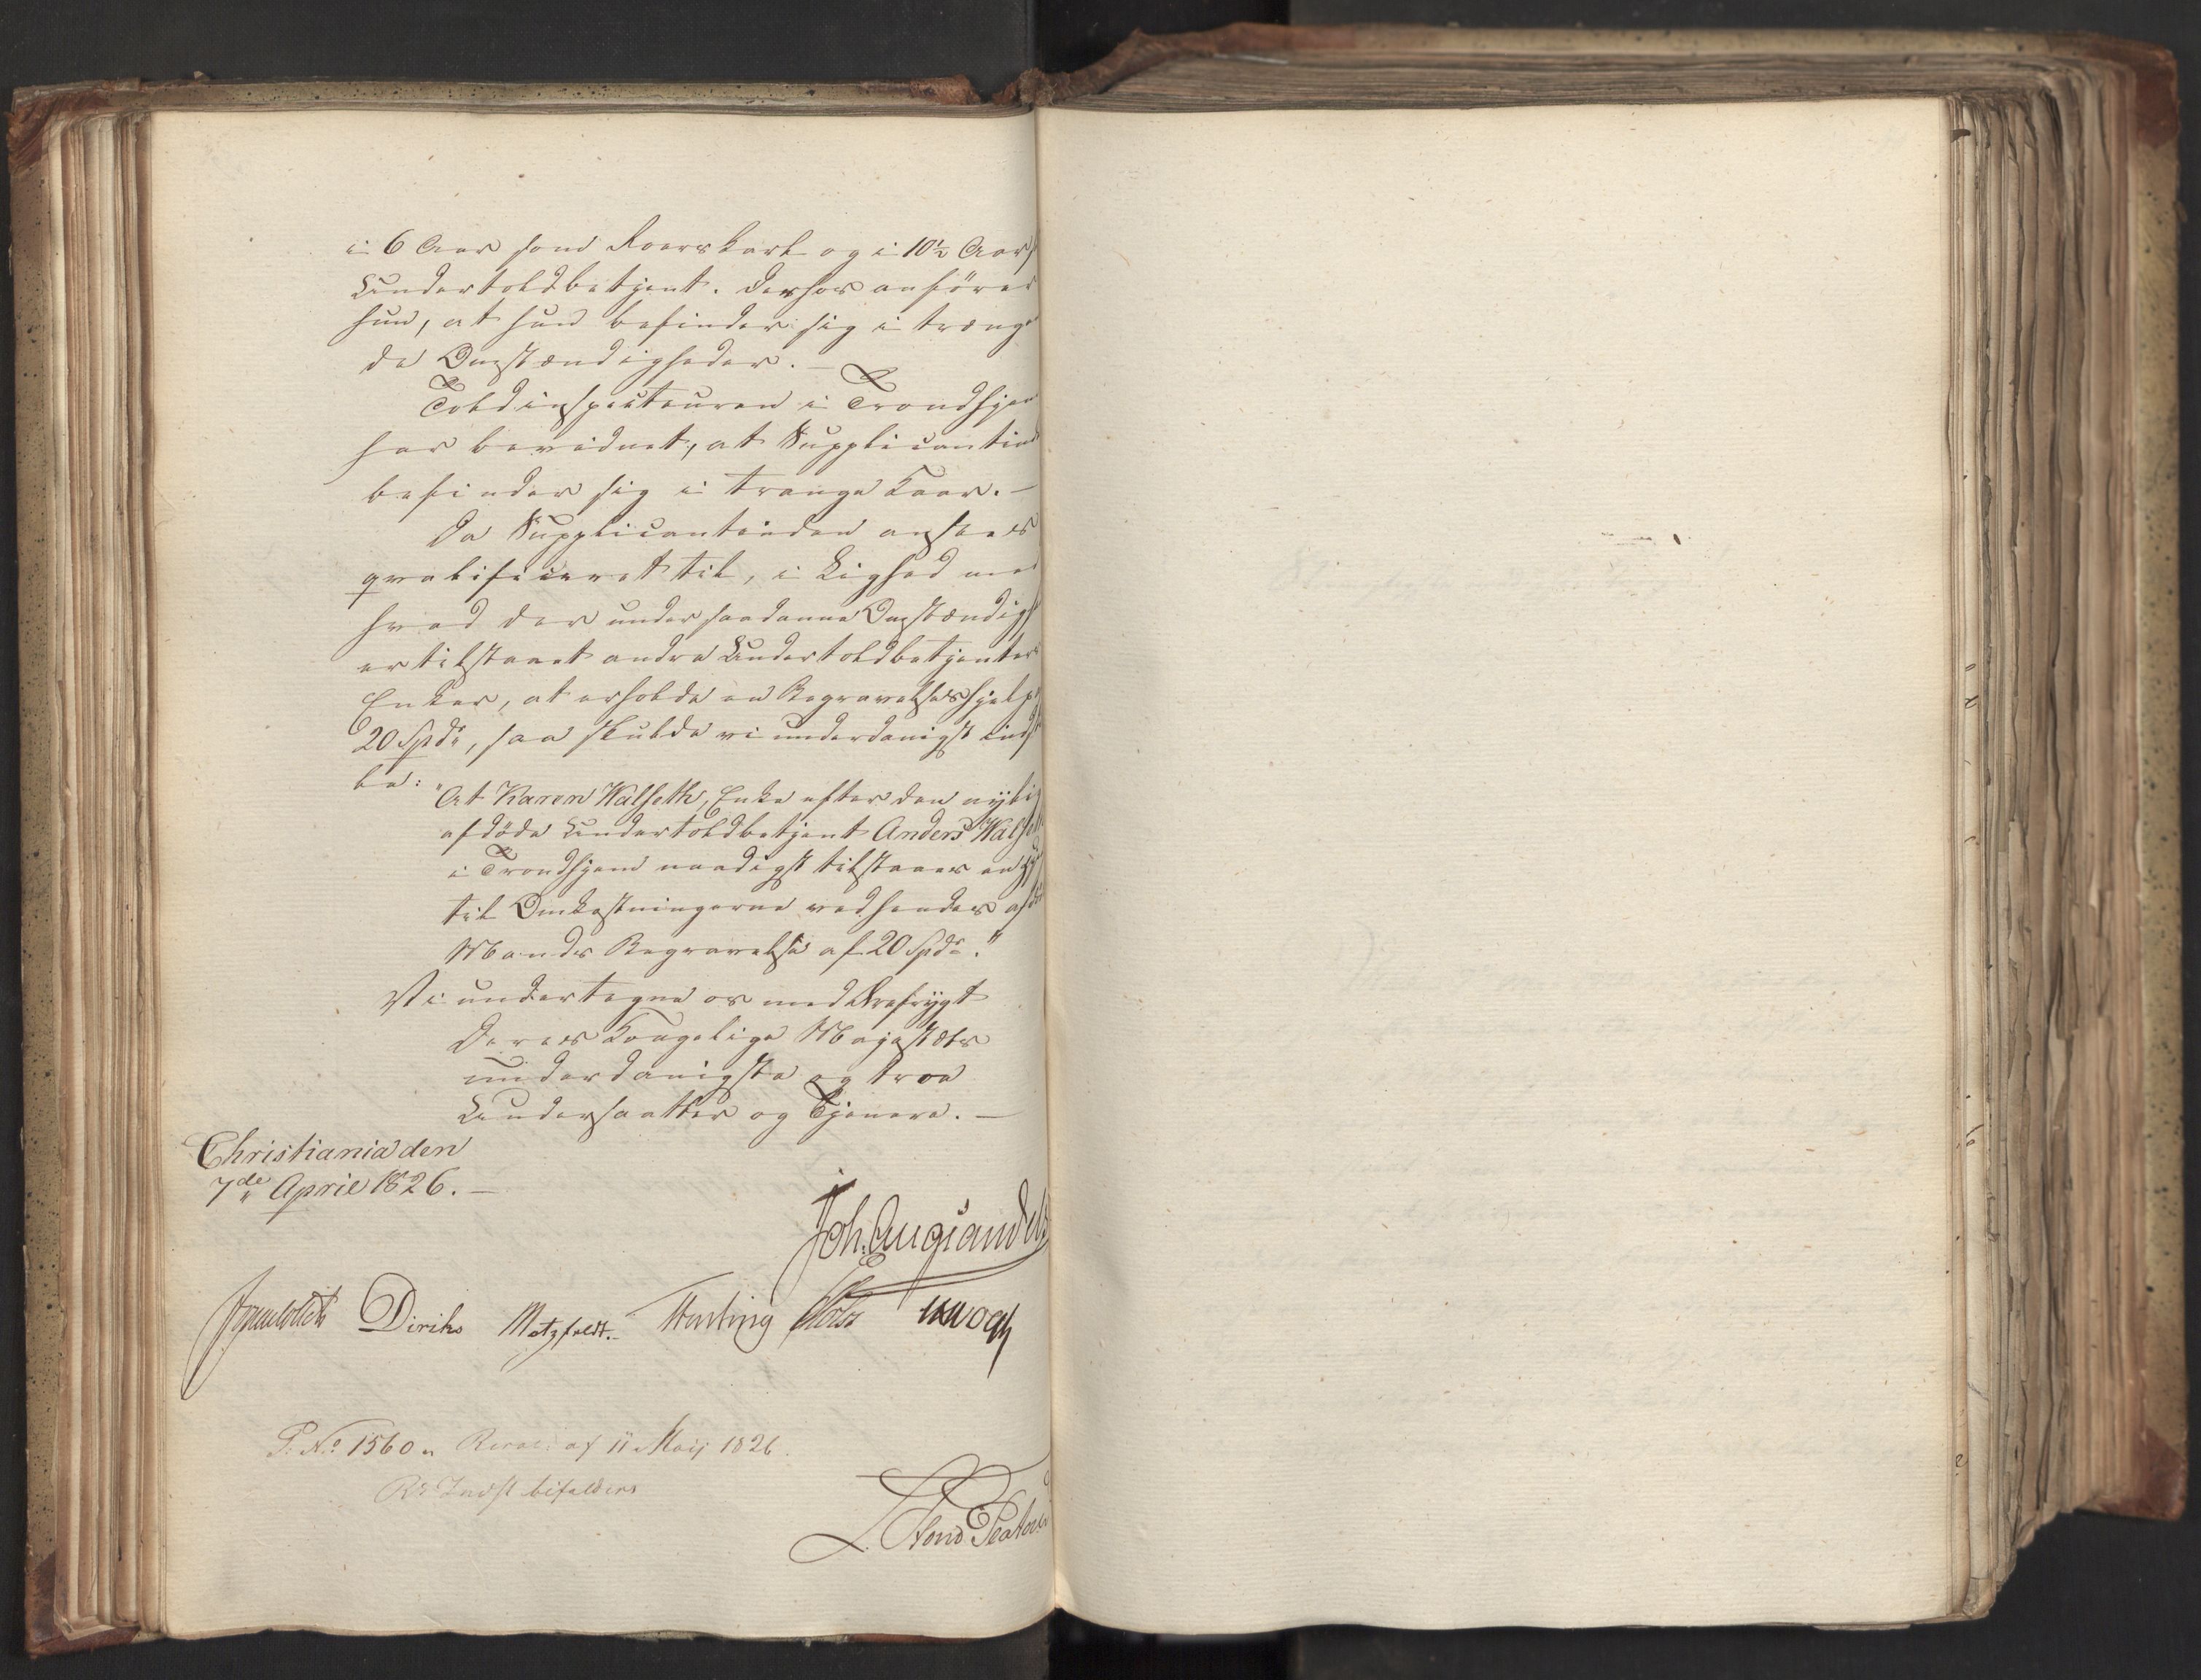 i 6 Aar som Roerskarl og i 10½ Aar s
Undertoldbetjent. Derhos anförer
hun, at hun befinder sig i trænge
de Omstændigheder. —
Toldinspecteuren i Trondhjem
har bevidnet, at Supplicantind
befinder sig i trange Kaar. —
Da Supplicantinden ansees
qvalificeret til, i Lighed med
hvad der under saadanne Omstændigh
er tilstaaet andre Undertoldbetjenters
Enker, at erholde en Begravelseshjelp
20 Spdr, saa skulde vi underdanigst indst
le:
"At Karen Walseth, Enke efter den nylig
afdöde Undertoldbetjent Anders Walseth
i Trondhjem naadigst tilstaaes en Hj
til Omkostningerne ved hendes afdö
Mands Begravelse af 20 Spdr."
Vi undertegne os med Ærefrygt
Deres Kongelige Majestæts
underdanigste og troe
Undersaatter og Tjenere. —
Christiania den
7de April 1826. —
Joh. Aug Sandels
Diriks Motzfeldt. Fasting Holst
P. No 1560. Resol: af 11 Maij 1826.
Rs Indst bifaldes